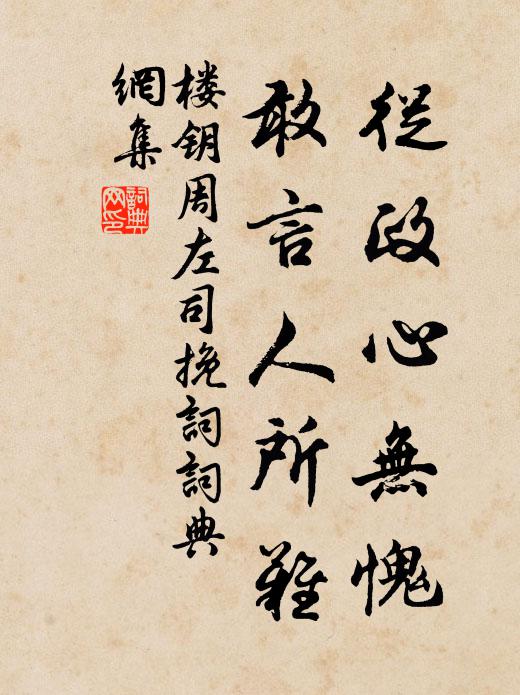 從政心無愧
敢言人所難
楼钥周左司挽詞詞典
網集
詞典网印